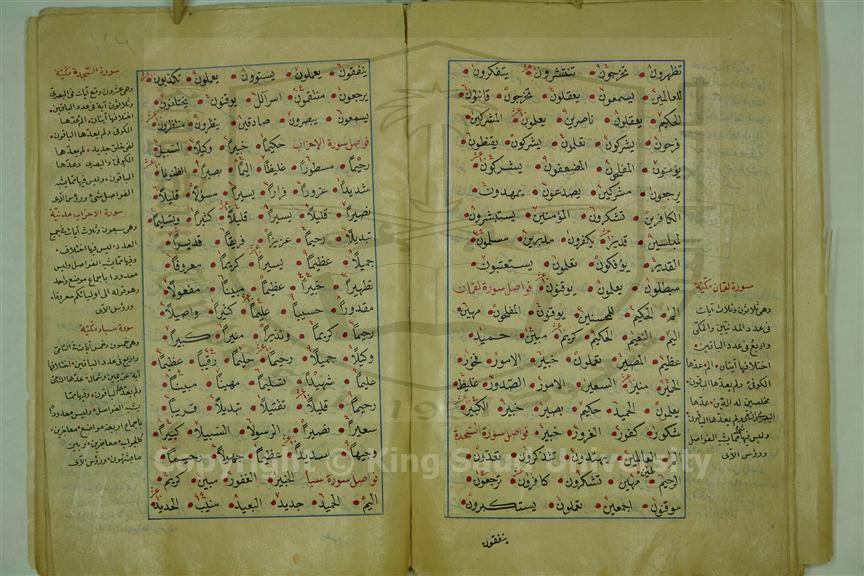 تظهرون تخرجون تنتشرون يتفكرون
للعالمين يسمعون يعقلون تخرجون قانتون
الحكيم يعقلون ناصرين يعلمون المشركين
فرحون يشركون تعلمون يشركون يقنطون
يؤمنون المفلحون المضعفون يشركون
يرجعون مشركين يصدعون يمهدون
الكافرين تشكرون المؤمنين يستبشرون
لمبلسين قدير يكفرون مدبرين مسلمون
القدير يؤفكون تعلمون يستعتبون
مبطلون يعلمون يوقنون فواصل سورة لقمان
الم الحكيم للمحسنين يوقنون المفلحون مهين
اليم النعيم الحكيم كريم مبين حميد
عظيم المصير تعلمون خبير الامور فخور
الحمير منير السعير الامور الصدور غليظ
يعلمون الحميد حكيم بصير خبير الكبير
شكور كفور الغرور خبير فواصل سورة السجدة
الم العالمين يهتدون تتذكرون تعدون
الرحيم مهين تشكرون كافرون ترجعون
موقنون اجمعين تعملون يستكبرون
ينفقون
سورة لقمان مكية
وهي ثلاثون وثلاث آيات
في عدد المدنيين والمكي
واربع في عدد الباقين
اختلافها آيتان الم عدها
الكوفي ولم يعدها الباقون
مخلصين له الدين عدها
وليس فيها مما يشبه الفواصل
ورؤس الآي
ينفقون يعملون يستوون يعملون تكذبون
يرجعون منتقمون اسرائيل يوقنون يختلفون
يسمعون يبصرون صادقين ينظرون منتظرون
فواصل سورة الاحزاب حكيما خبيرا وكيلا السبيل
رحيما مسطورا غليظا اليما بصيرا الظنونا
شديدا غرورا فرارا يسيرا مسؤلا قليلا
نصيرا قليلا يسيرا قليلا كثيرا وتسليما
تبديلا رحيما عزيزا فريقا قديرا
جميلا عظيما يسيرا كريما معروفا
تطهيرا خبيرا عظيما مبينا مفعولا
مقدورا حسيبا عليما كثيرا واصيلا
رحيما كريما ونذيرا منيرا كبيرا
وكيلا جميلا رحيما حليما رقيبا عظيما
عليما شهيدا تسليما مهينا مبينا
رحيما قليلا تقتيلا تبديلا قريبا
سعيرا نصيرا الرسولا السبيلا كبيرا
وجيها سديدا عظيما جهولا رحيما
فواصل سورة سبا الخبير الغفور مبين كريم
اليم الحميد جديد البعيد منيب الحديد
سورة السجدة مكية
وهي عشرون وتسع آيات في البصري
وثلاثون آية في عدد الباقين
اختلافها آيتان الم عدها
الكوفي ولم يعدها الباقون
لفي خلق جديد لم يعدها
الكوفي والبصري وعدها
الباقون وليس فيها مما يشبه
الفواصل شيء ورؤس الآي
سورة الاحزاب مدنية
وهي سبعون وثلاث آيات في جميع
العدد ليس فيها اختلاف
وفيها مما يشبه الفواصل وليس
معدودا باجماع موضع واحد
وهو قوله الى اوليائكم معروفا
ورؤس الآي
سورة سبأ مكية
وهي خمسون وخمس آيات في الشامي
واربع في عدد الباقين اختلافها
آية عن يمين وشمال عدها الشامي
ولم يعدها الباقون وفيها مما
يشبه الفواصل وليس معدودا
باجماع اربعة مواضع معاجزين
كالجواب معاجزين وبين
ما يشتهون ورؤس الآي
Copyright © King Saud University